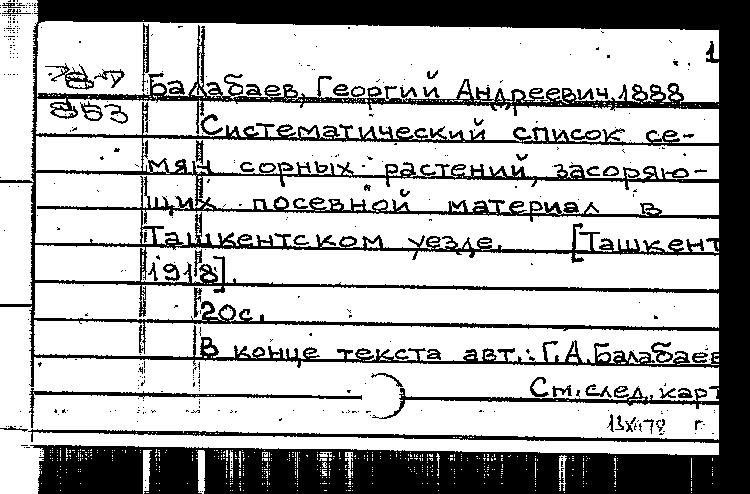 1
Балабаев, Георгий Андреевич, 1888
853
Систематический список се-
мян сорных растений, засоряю-
щих посевной материал в
Ташкентском уезде. [Ташкент
1918].
20с.
В конце текста авт.: Г.А.Балабаев
См. след. карт
г